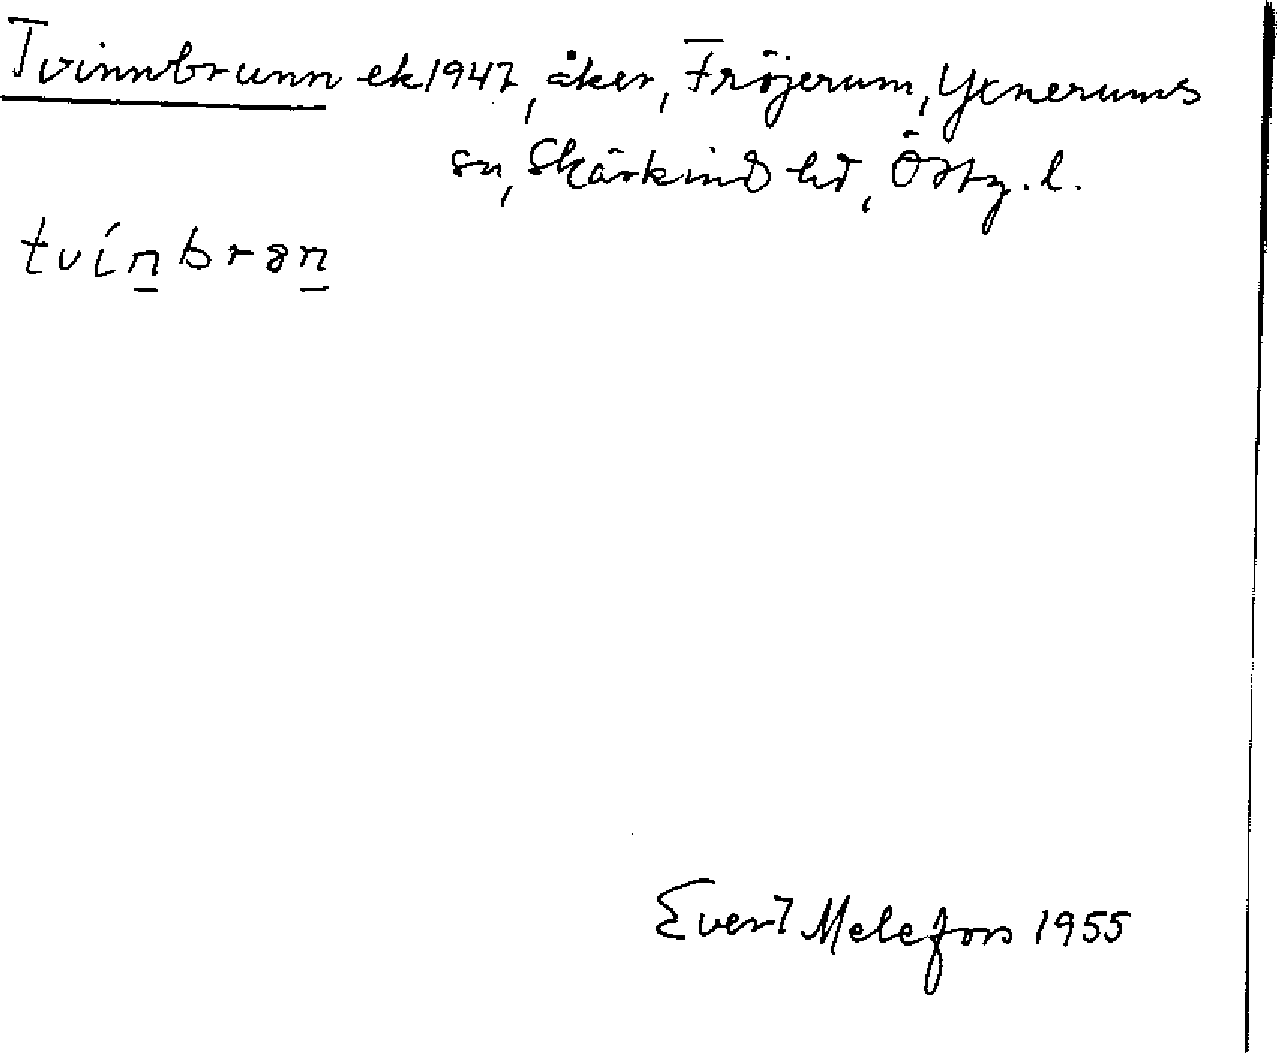 Tvinnbrunn ek 1947, åker, Fröjerum, Yxnerums
sn, Skärkind hd, Östg. l.
tvínbrən
Evert Melefors 1955